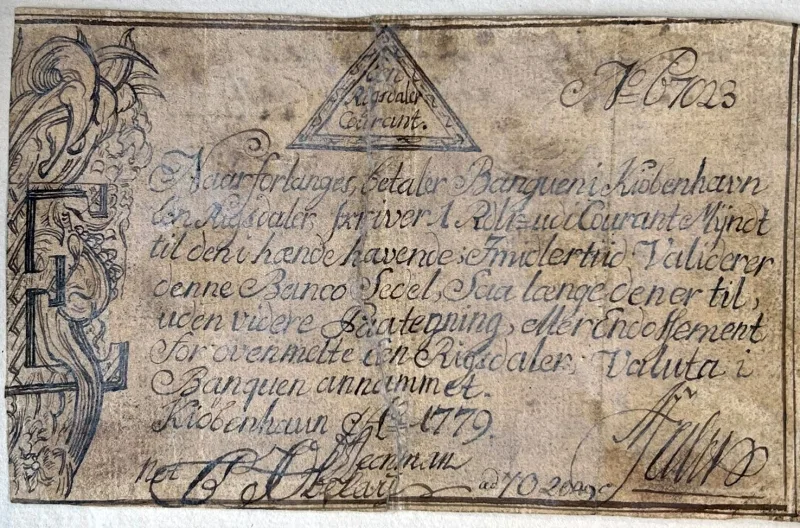 Een
Rigsdaler
Courant.
No 67023
Naar forlanges, betaler Banquen i Kiøbenhavn
Een Rigsdaler, skriver 1 Rdlr udi Courant Mÿndt
til den i hænde havende, Imidlertiid Validerer
denne Banco Sedel, Saa længe den er til,
uden videre Paategning, eller Endossement
for ovenmelte Een Rigsdaler, Valuta i
Banquen annammet.
Kiøbenhavn Ao 1779.